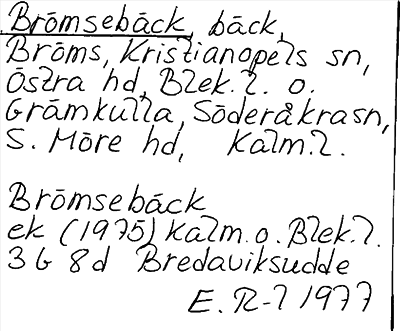 Brömsebäck, bäck,
Bröms, Kristianopels sn,
Östra hd, Blek.l. o.
Gråmkulla, Söderåkra sn,
S. Möre hd, Kalm.l.
Brömsebäck
ek (1975) Kalm. o. Blek.l.
3G 8d Bredaviksudde
E. R-l 1977